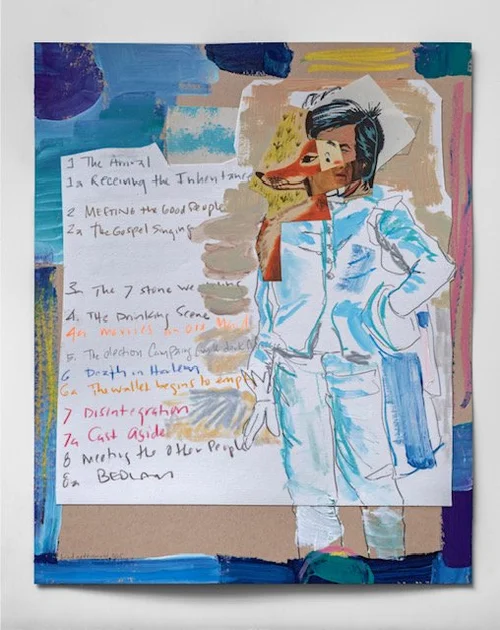 1 The Arrival
1a Receiving the Inheritance
2 MEETING the Good People
2a The Gospel Singing
3. The 7 stone we
4. The Drinking Scene
4a Marries an Old Maid
5. The election Campaing
6 Death in Harlem
6a The wallet begins to emp
7 Disintegration
7a Cast Aside
8 Meeting the Other People
8a BEDLAM